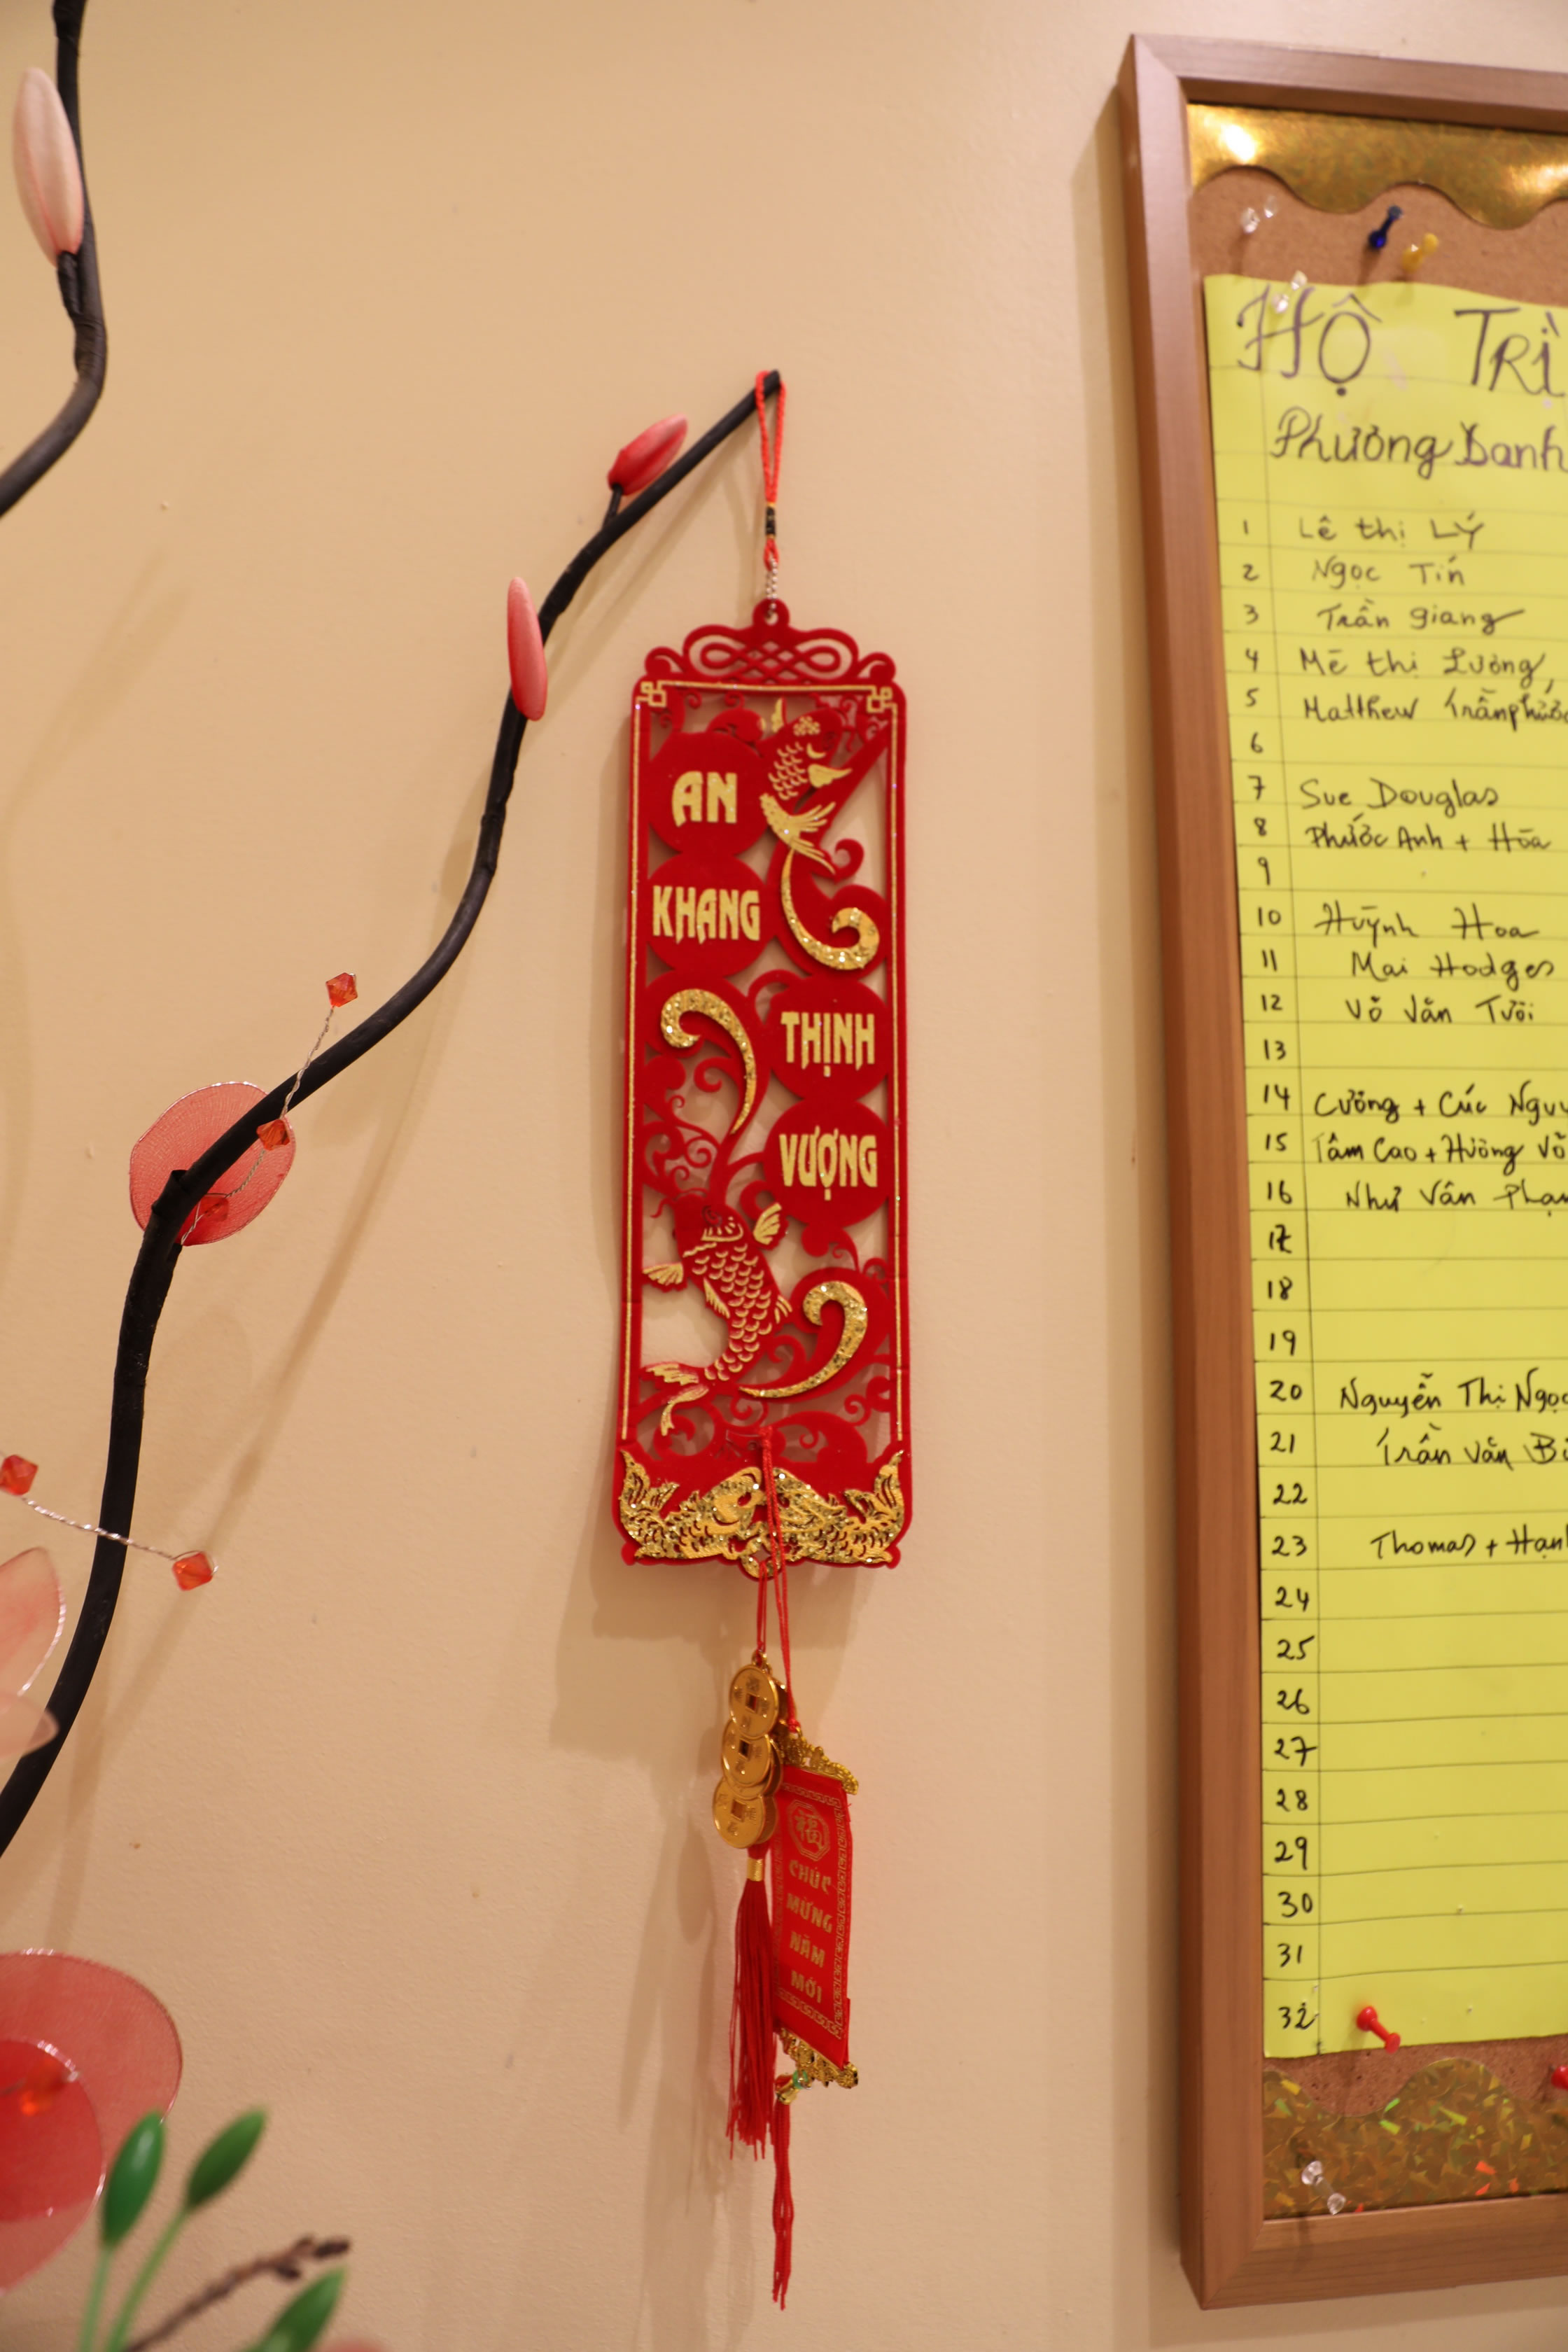 AN
KHANG
THỊNH
VƯỢNG
福
CHÚC
MỪNG
NĂM
MỚI
HỘ TRÌ
Phương Danh
1 Lê thị Lý
2 Ngọc Tín
3 Trần giang
4 Mẽ thị Lương,
5 Matthew Trần
6
7 Sue Douglas
8 Phước Anh + Hòa
9
10 Huỳnh Hoa
11 Mai Hodges
12 Võ Văn Tươi
13
14 Cương + Cúc
15 Tâm Cao + Hương Võ
16 Như Vân
17
18
19
20 Nguyễn Thị Ngọc
21 Trần Văn
22
23 Thomas +
24
25
26
27
28
29
30
31
32